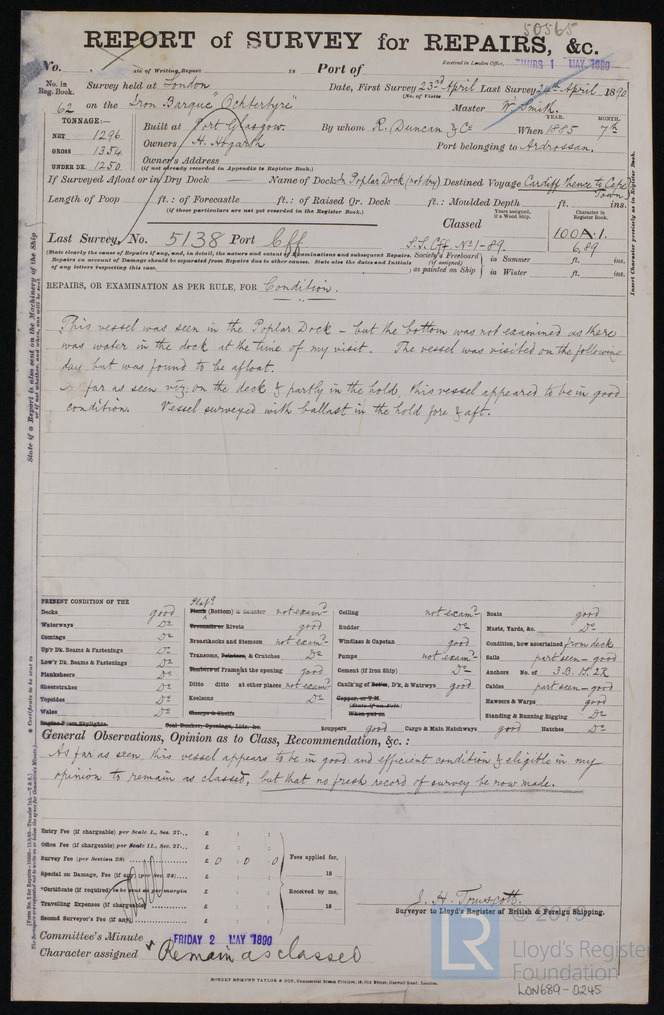 50565
REPORT of SURVEY for REPAIRS, &c.
Received in London Office, THURS 1 MAY 1890
No. Date of Writing Report 18 Port of
No. in Reg. Book. Survey held at London Date, First Survey 23rd April Last Survey 24th April 1890
(No. of Visits)
62 on the Iron Barque "Ochtertyre" Master W. Smith.
TONNAGE:— YEAR. MONTH.
NET 1296 Built at Port Glasgow. By whom R. Duncan & Co When 1885 7th
GROSS 1354 Owners H. Hogarth Port belonging to Ardrossan.
UNDER DK. 1250 Owner's Address
(if not already recorded in Appendix to Register Book.)
If Surveyed Afloat or in Dry Dock Name of Dock In Poplar Dock (not dry) Destined Voyage Cardiff thence to Cape Town
Length of Poop ft.: of Forecastle ft.: of Raised Qr. Deck ft.: Moulded Depth ft. ins.
(if these particulars are not yet recorded in the Register Book.)
Years assigned, if a Wood Ship. Character in Register Book.
Classed 100A.1.
Last Survey, No. 5138 Port Cff S.S. Cff. No 1-89. 6,89
(State clearly the cause of Repairs if any, and, in detail, the nature and extent of Examinations and subsequent Repairs. Repairs on account of Damage should be separated from Repairs due to other causes. State also the dates and Initials of any letters respecting this case.
Society's Freeboard (if assigned) as painted on Ship in Summer ft. ins.
in Winter ft. ins.
REPAIRS, OR EXAMINATION AS PER RULE, FOR Condition.
This vessel was seen in the Poplar Dock – but the bottom was not examined as there
was water in the dock at the time of my visit. The vessel was visited on the following
day but was found to be afloat.
As far as seen viz. on the deck & partly in the hold, this vessel appeared to be in good
condition. Vessel surveyed with ballast in the hold fore & aft.
PRESENT CONDITION OF THE
Decks good
Waterways Do
Comings Do
Up'r Dk. Beams & Fastenings Do
Low'r Dk. Beams & Fastenings Do
Planksheers Do
Sheerstrakes Do
Topsides Do
Wales Do
Engine Room Skylights.
Plank (Bottom) & Counter not examd
Treenails or Rivets good
Breasthooks and Stemson not examd
Transoms, Pointers, & Crutches Do
Timbers of Frame at the opening good
Ditto ditto at other places not examd
Keelsons Do
Clamps & Shelfs
Coal Bunker, Openings, Lids, &c.
Ceiling not examd
Rudder Do
Windlass & Capstan good
Pumps not examd
Cement (if Iron Ship) Do
Caulk'ng of Bottm, D'k, & Watrwys good
Copper, or Y.M.
(State if on Felt)
When put on
Scuppers good Cargo & Main Hatchways good Hatches Do
Boats good
Masts, Yards, &c. Do
Condition, how ascertained from deck
Sails part seen – good
Anchors No. of 3 B. 1 S. 2 K
Cables part seen – good
Hawsers & Warps good
Standing & Running Rigging Do
General Observations, Opinion as to Class, Recommendation, &c.:
As far as seen, this vessel appears to be in good and efficient condition & eligible in my
opinion to remain as classed, but that no fresh record of survey be now made.
Entry Fee (if chargeable) per Scale I., Sec. 27... £ : :
Office Fee (if chargeable) per Scale II., Sec. 27... £ : :
Survey Fee (per Section 28) £ 0 : 0 : 0 Fees applied for,
Special on Damage, Fee (if any) (per Sec. 28) £ : : 18
*Certificate (if required) to be sent as per margin £ : : Received by me,
Travelling Expenses (if chargeable) £ : : 18
Second Surveyor's Fee (if any) £ : :
J. H. Truscott.
Surveyor to Lloyd's Register of British & Foreign Shipping.
Committee's Minute FRIDAY 2 MAY 1890
Character assigned Remain as classed
ROBERT EDMUND TAYLOR & SON, Commercial Steam Printers, 19, Old Street, Goswell Road, London.
State if a Report is also sent on the Machinery of the Ship
Insert Character precisely as in Register Book.
* Certificate to be sent to
© 2019
LR
Lloyd's Register
Foundation
LON689-0245